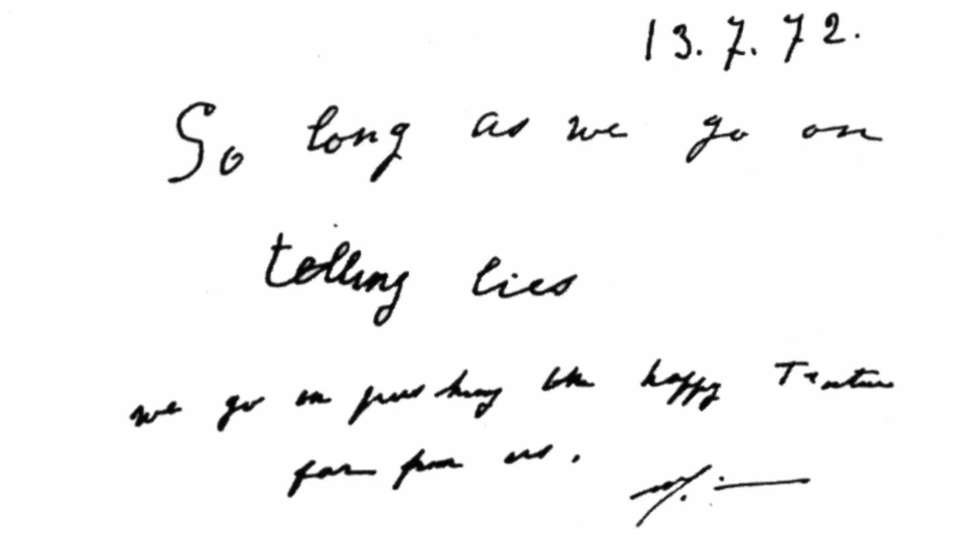 13.7.72.
So long as we go on
telling lies
we go on pushing the happy
far from us.